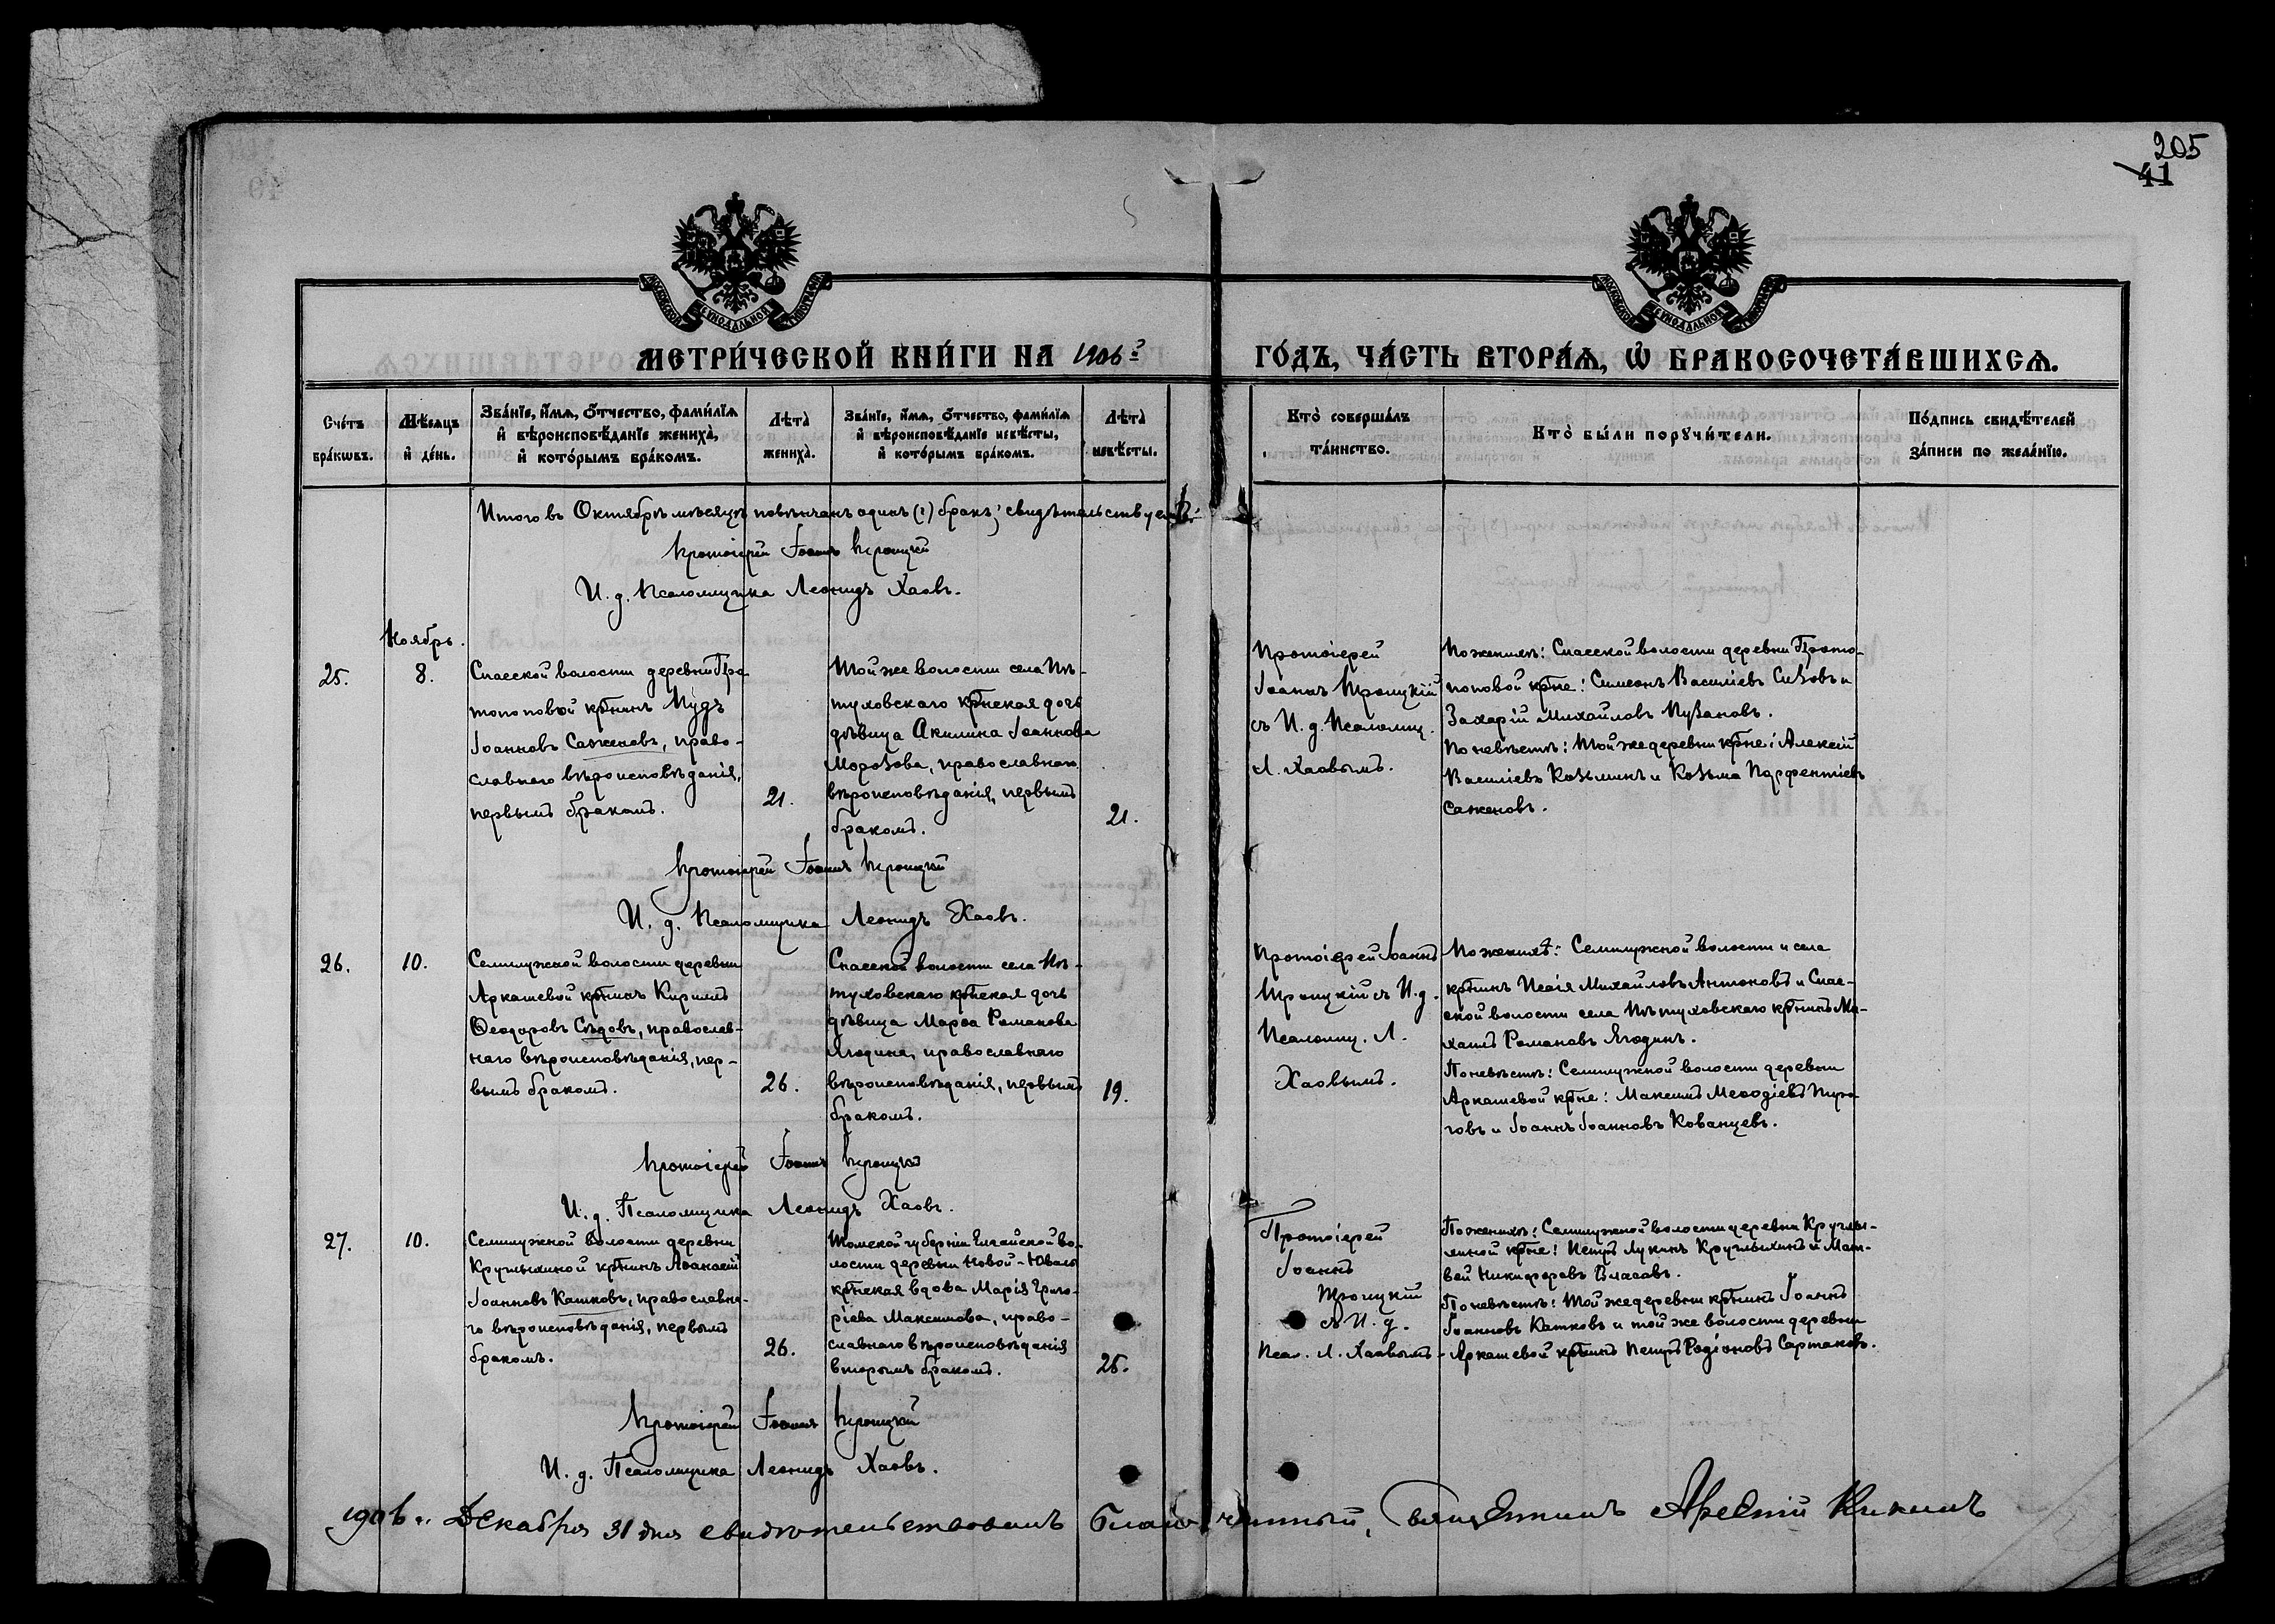 205
41
МОСКОВСКОЙ СУНОДАЛЬНОЙ ТУПОГРАФІИ
МОСКОВСКОЙ СУНОДАЛЬНОЙ ТУПОГРАФІИ
МЕТРИ́ЧЕСКОЙ КНИ́ГИ НА 1906 г
ГО́ДЪ, ЧА́СТЬ ВТОРА́Ѧ, Ѡ҆ БРАКОСОЧЕТА́ВШИХСѦ.
Сче́тъ
бра́кѡвъ.
Мѣ́сяцъ
и҆ де́нь.
Зва́нїе, и҆́мѧ, о҆́тчество, фами́лїѧ
и҆ вѣроисповѣ́данїе жениха̀,
и҆ кото́рымъ бра́комъ.
Лѣта̀
жениха̀.
Зва́нїе, и҆́мѧ, о҆́тчество, фами́лїѧ
и҆ вѣроисповѣ́данїе невѣ́сты,
и҆ кото́рымъ бра́комъ.
Лѣта̀
невѣ́сты.
Кто̀ соверша́лъ
та́инство.
Кто̀ бы́ли порꙋчи́тели.
По́дпись свидѣ́телей
за́писи по жела́нїю.
Итого въ Октябрѣ мѣсяцѣ повѣнчанъ одинъ (1) бракъ; свидѣтельствуемъ:
Протоіерей Іоаннъ Троицкій
И. д. Псаломщика Леонидъ Хаовъ.
Ноябрь.
25.
8.
Спасской волости деревни Про
топоповой кр̃тнинъ Мудъ
Іоанновъ Саженовъ, право-
славнаго вѣроисповѣданія,
первымъ бракомъ.
21.
Той же волости села Пѣ-
туховскаго кр̃тнская дочь
дѣвица Акилина Іоаннова
Морозова, православнаго
вѣроисповѣданія, первымъ
бракомъ.
21.
Протоіерей
Іоаннъ Троицкій
съ И. д. Псаломщ.
Л. Хаовымъ.
По женихѣ: Спасской волости деревни Прото-
поповой кр̃тне: Симеонъ Василіевъ Сизовъ и
Захарій Михайловъ Пузановъ.
По невѣстѣ: Той же деревни кр̃тне: Алексій
Василіевъ Козьминъ и Козьма Парфентіевъ
Саженовъ.
Протоіерей Іоаннъ Троицкій
И. д. Псаломщика Леонидъ Хаовъ.
26.
10.
Семилужной волости деревни
Аркашевой кр̃тнинъ Кириллъ
Ѳеодоровъ Сѣдовъ, православ-
наго вѣроисповѣданія, пер-
вымъ бракомъ.
26.
Спасской волости села Пѣ-
туховскаго кр̃тнская дочь
дѣвица Марѳа Романова
Ягодина, православнаго
вѣроисповѣданія, первымъ
бракомъ.
19.
Протоіерей Іоаннъ
Троицкій съ И. д.
Псаломщ. Л.
Хаовымъ.
По женихѣ: Семилужной волости и села
кр̃тнинъ Исаія Михайловъ Антоновъ и Спас-
ской волости села Пѣтуховскаго кр̃тнинъ Ми-
хаилъ Романовъ Ягодинъ.
По невѣстѣ: Семилужной волости деревни
Аркашевой кр̃тне: Максимъ Меѳодіевъ Пиро-
говъ и Іоаннъ Іоанновъ Кованцевъ.
Протоіерей Іоаннъ Троицкій
И. д. Псаломщика Леонидъ Хаовъ.
27.
10.
Семилужной волости деревни
Круглыхиной кр̃тнинъ Аѳанасій
Іоанновъ Кашковъ, православна-
го вѣроисповѣданія, первымъ
бракомъ.
26.
Томской губерніи Елгайской во-
лости деревни Новой-Ювалы
кр̃тнская вдова Марія Григо-
ріева Максимова, право-
славнаго вѣроисповѣданія
вторымъ бракомъ.
25.
Протоіерей
Іоаннъ
Троицкій
съ И. д.
Псал. Л. Хаовымъ.
По женихѣ: Семилужной волости деревни Круглы-
хиной кр̃тне: Петръ Лукинъ Круглыхинъ и Мат-
вей Никифоровъ Власовъ.
По невѣстѣ: Той же деревни кр̃тнинъ Іоаннъ
Іоанновъ Кашковъ и той же волости деревни
Аркашевой кр̃тнинъ Петръ Родіоновъ Сартаковъ.
Протоіерей Іоаннъ Троицкій
И. д. Псаломщика Леонидъ Хаовъ.
1906 г. Декабря 31 дня свидѣтельствовалъ Благочинный, Священникъ Арсеній Кикинъ